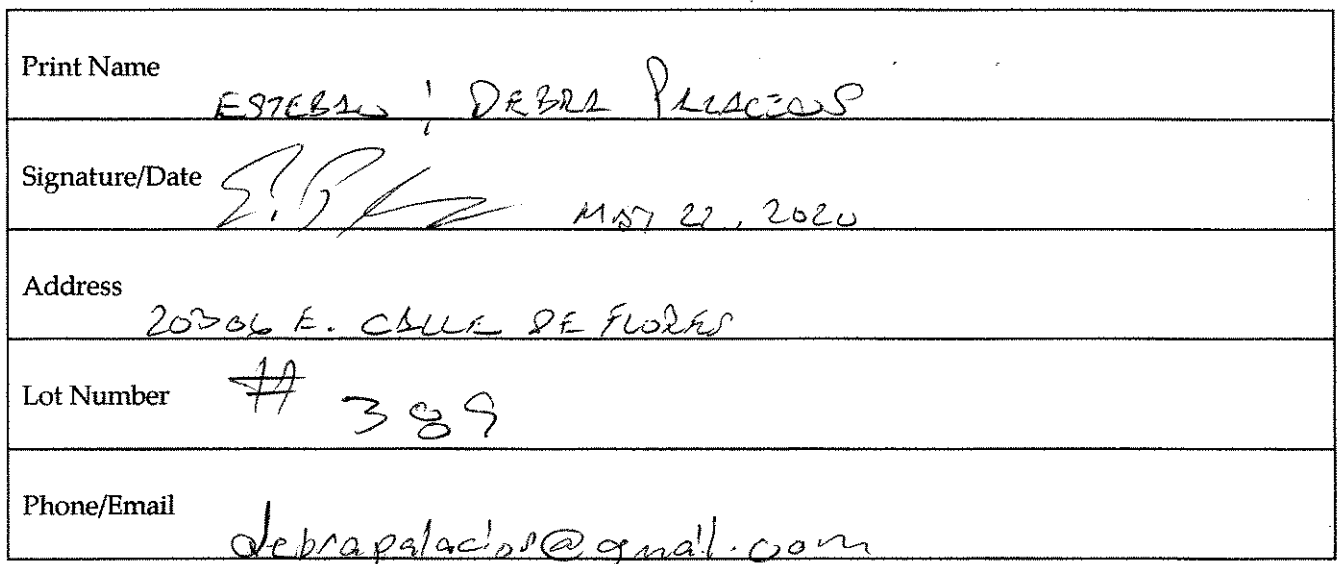 Print Name
ESTEBAN ! DEBRA PALACIOS
Signature/Date MAY 22, 2020
Address
20306 E. CALLE DE FLORES
Lot Number # 389
Phone/Email
debrapalacios@gmail.com